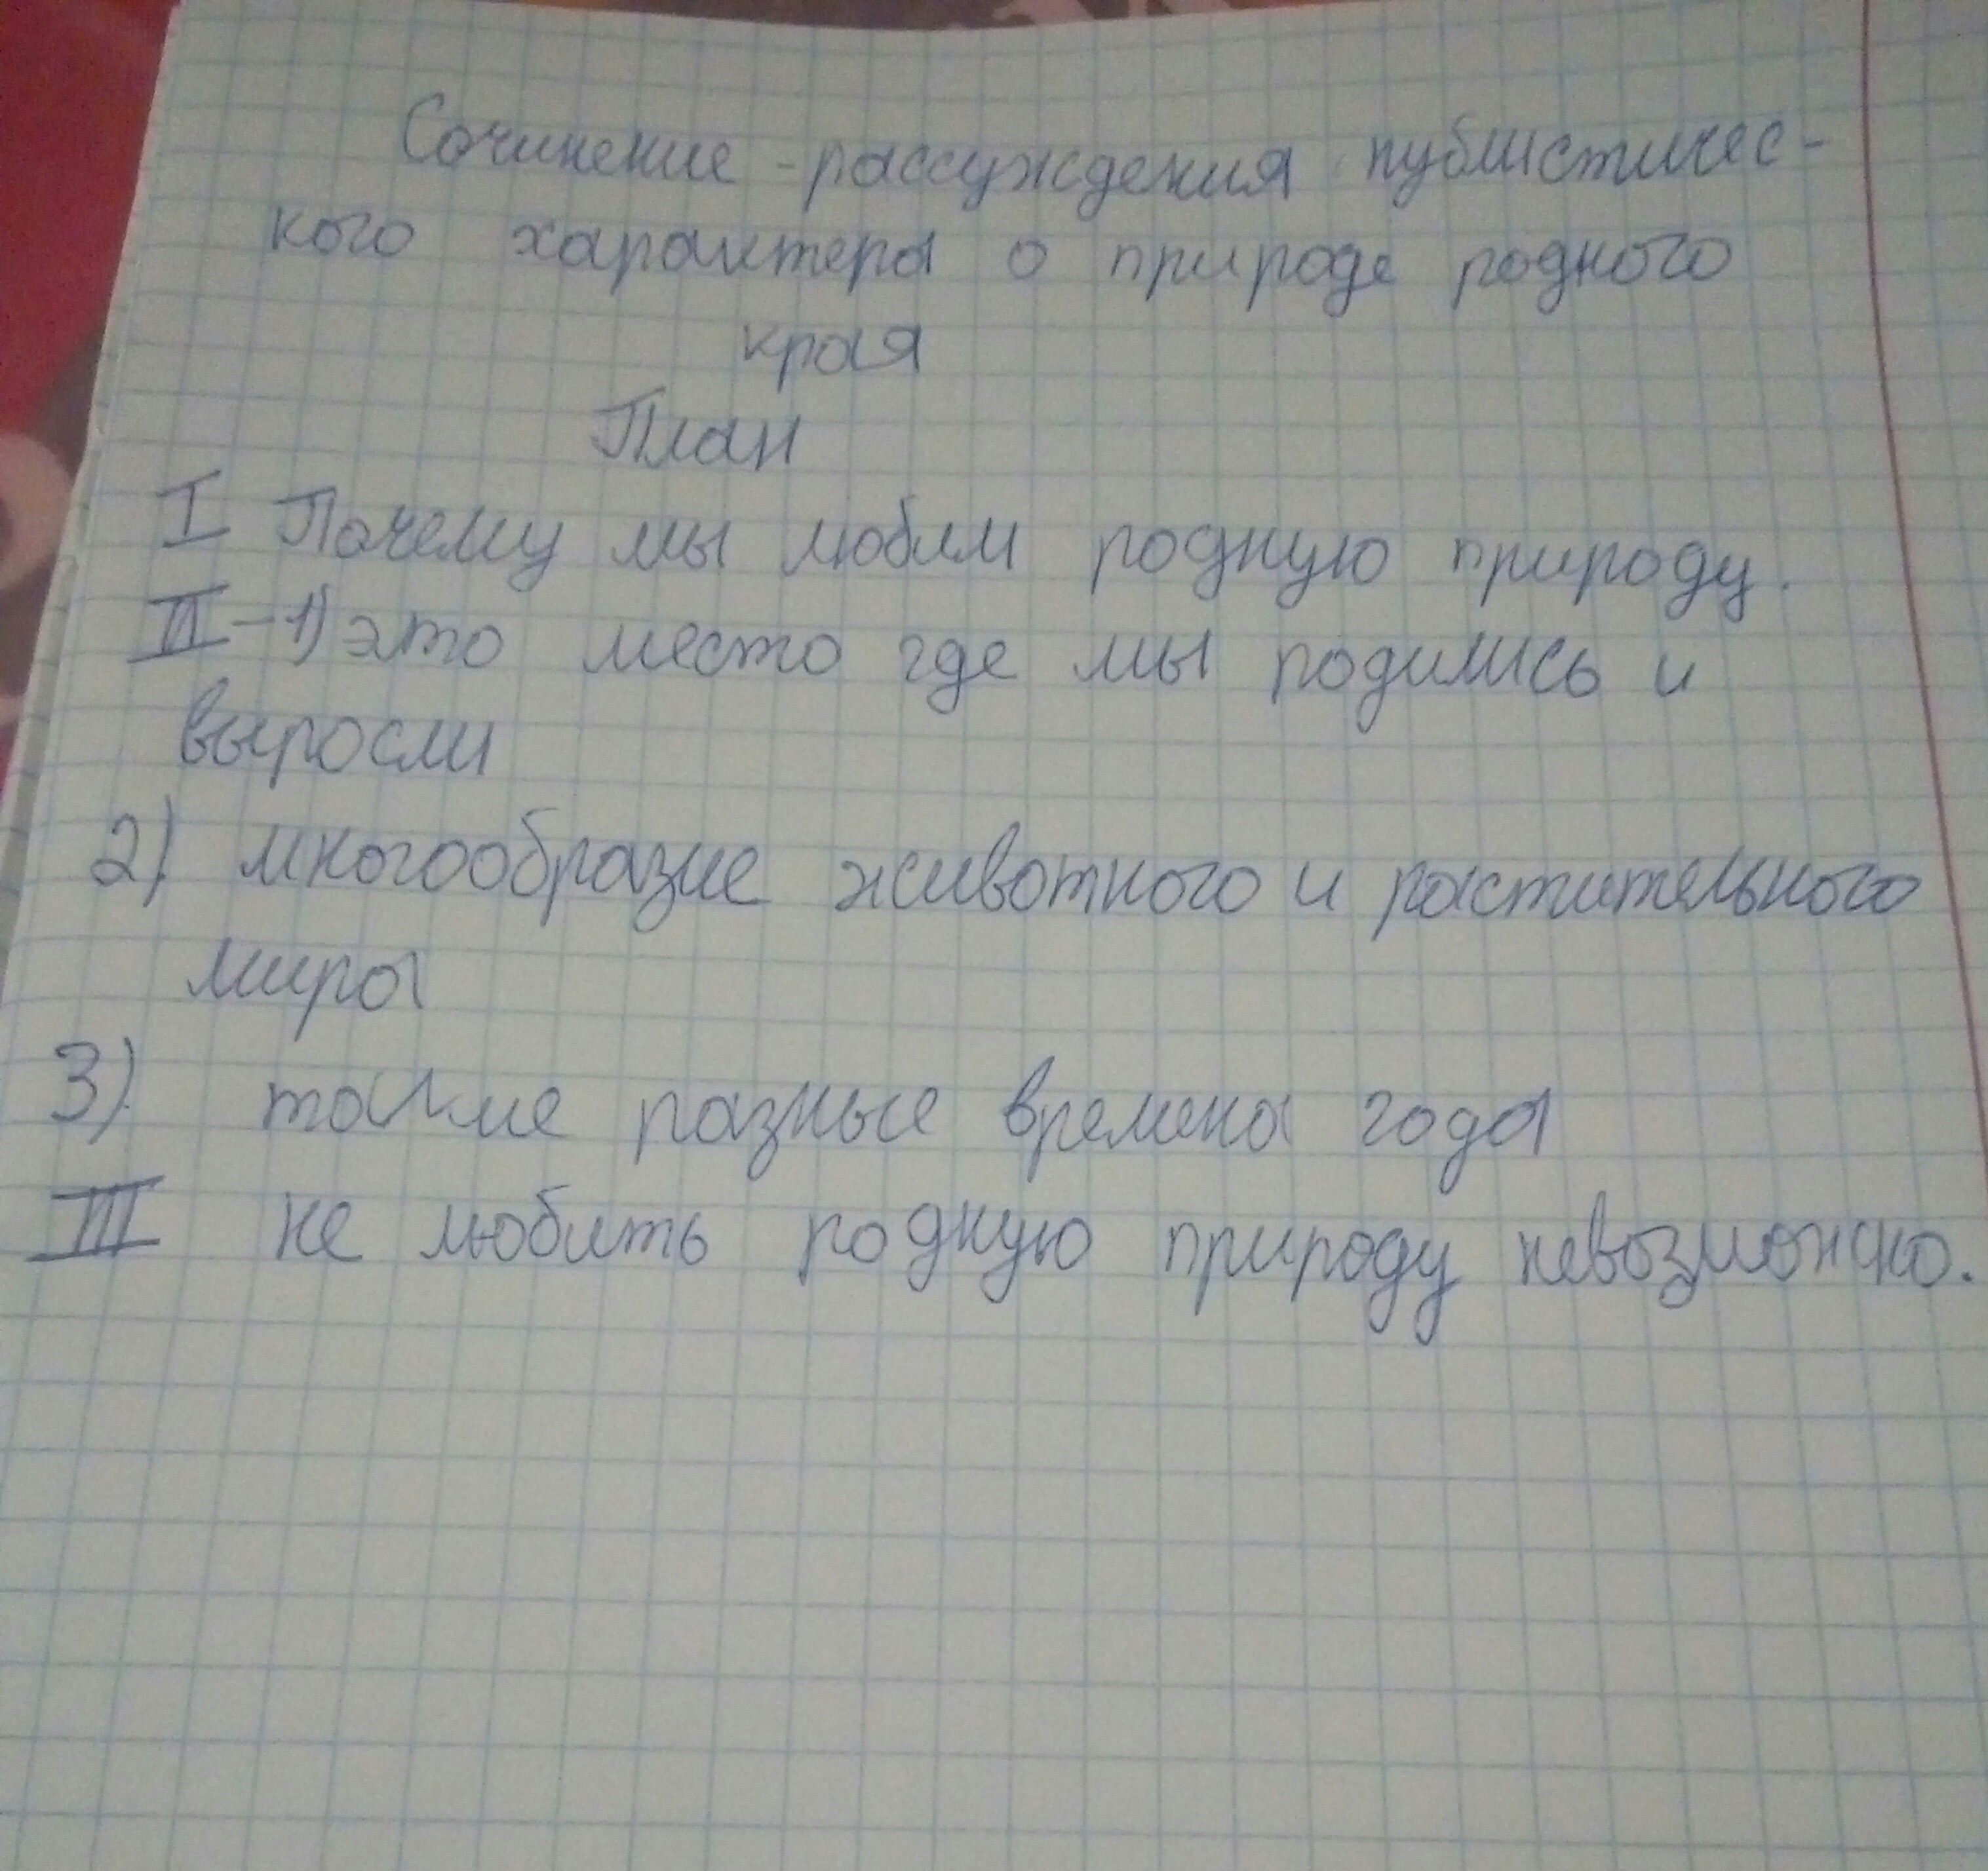 Сочинение -рассуждения публистичес-
кого характера о природе родного
края
План
I Почему мы любим родную природу.
II-1) это место где мы родились и
выросли
2) многообразие животного и растительного
мира
3) такие разные времена года
III не любить родную природу невозможно.